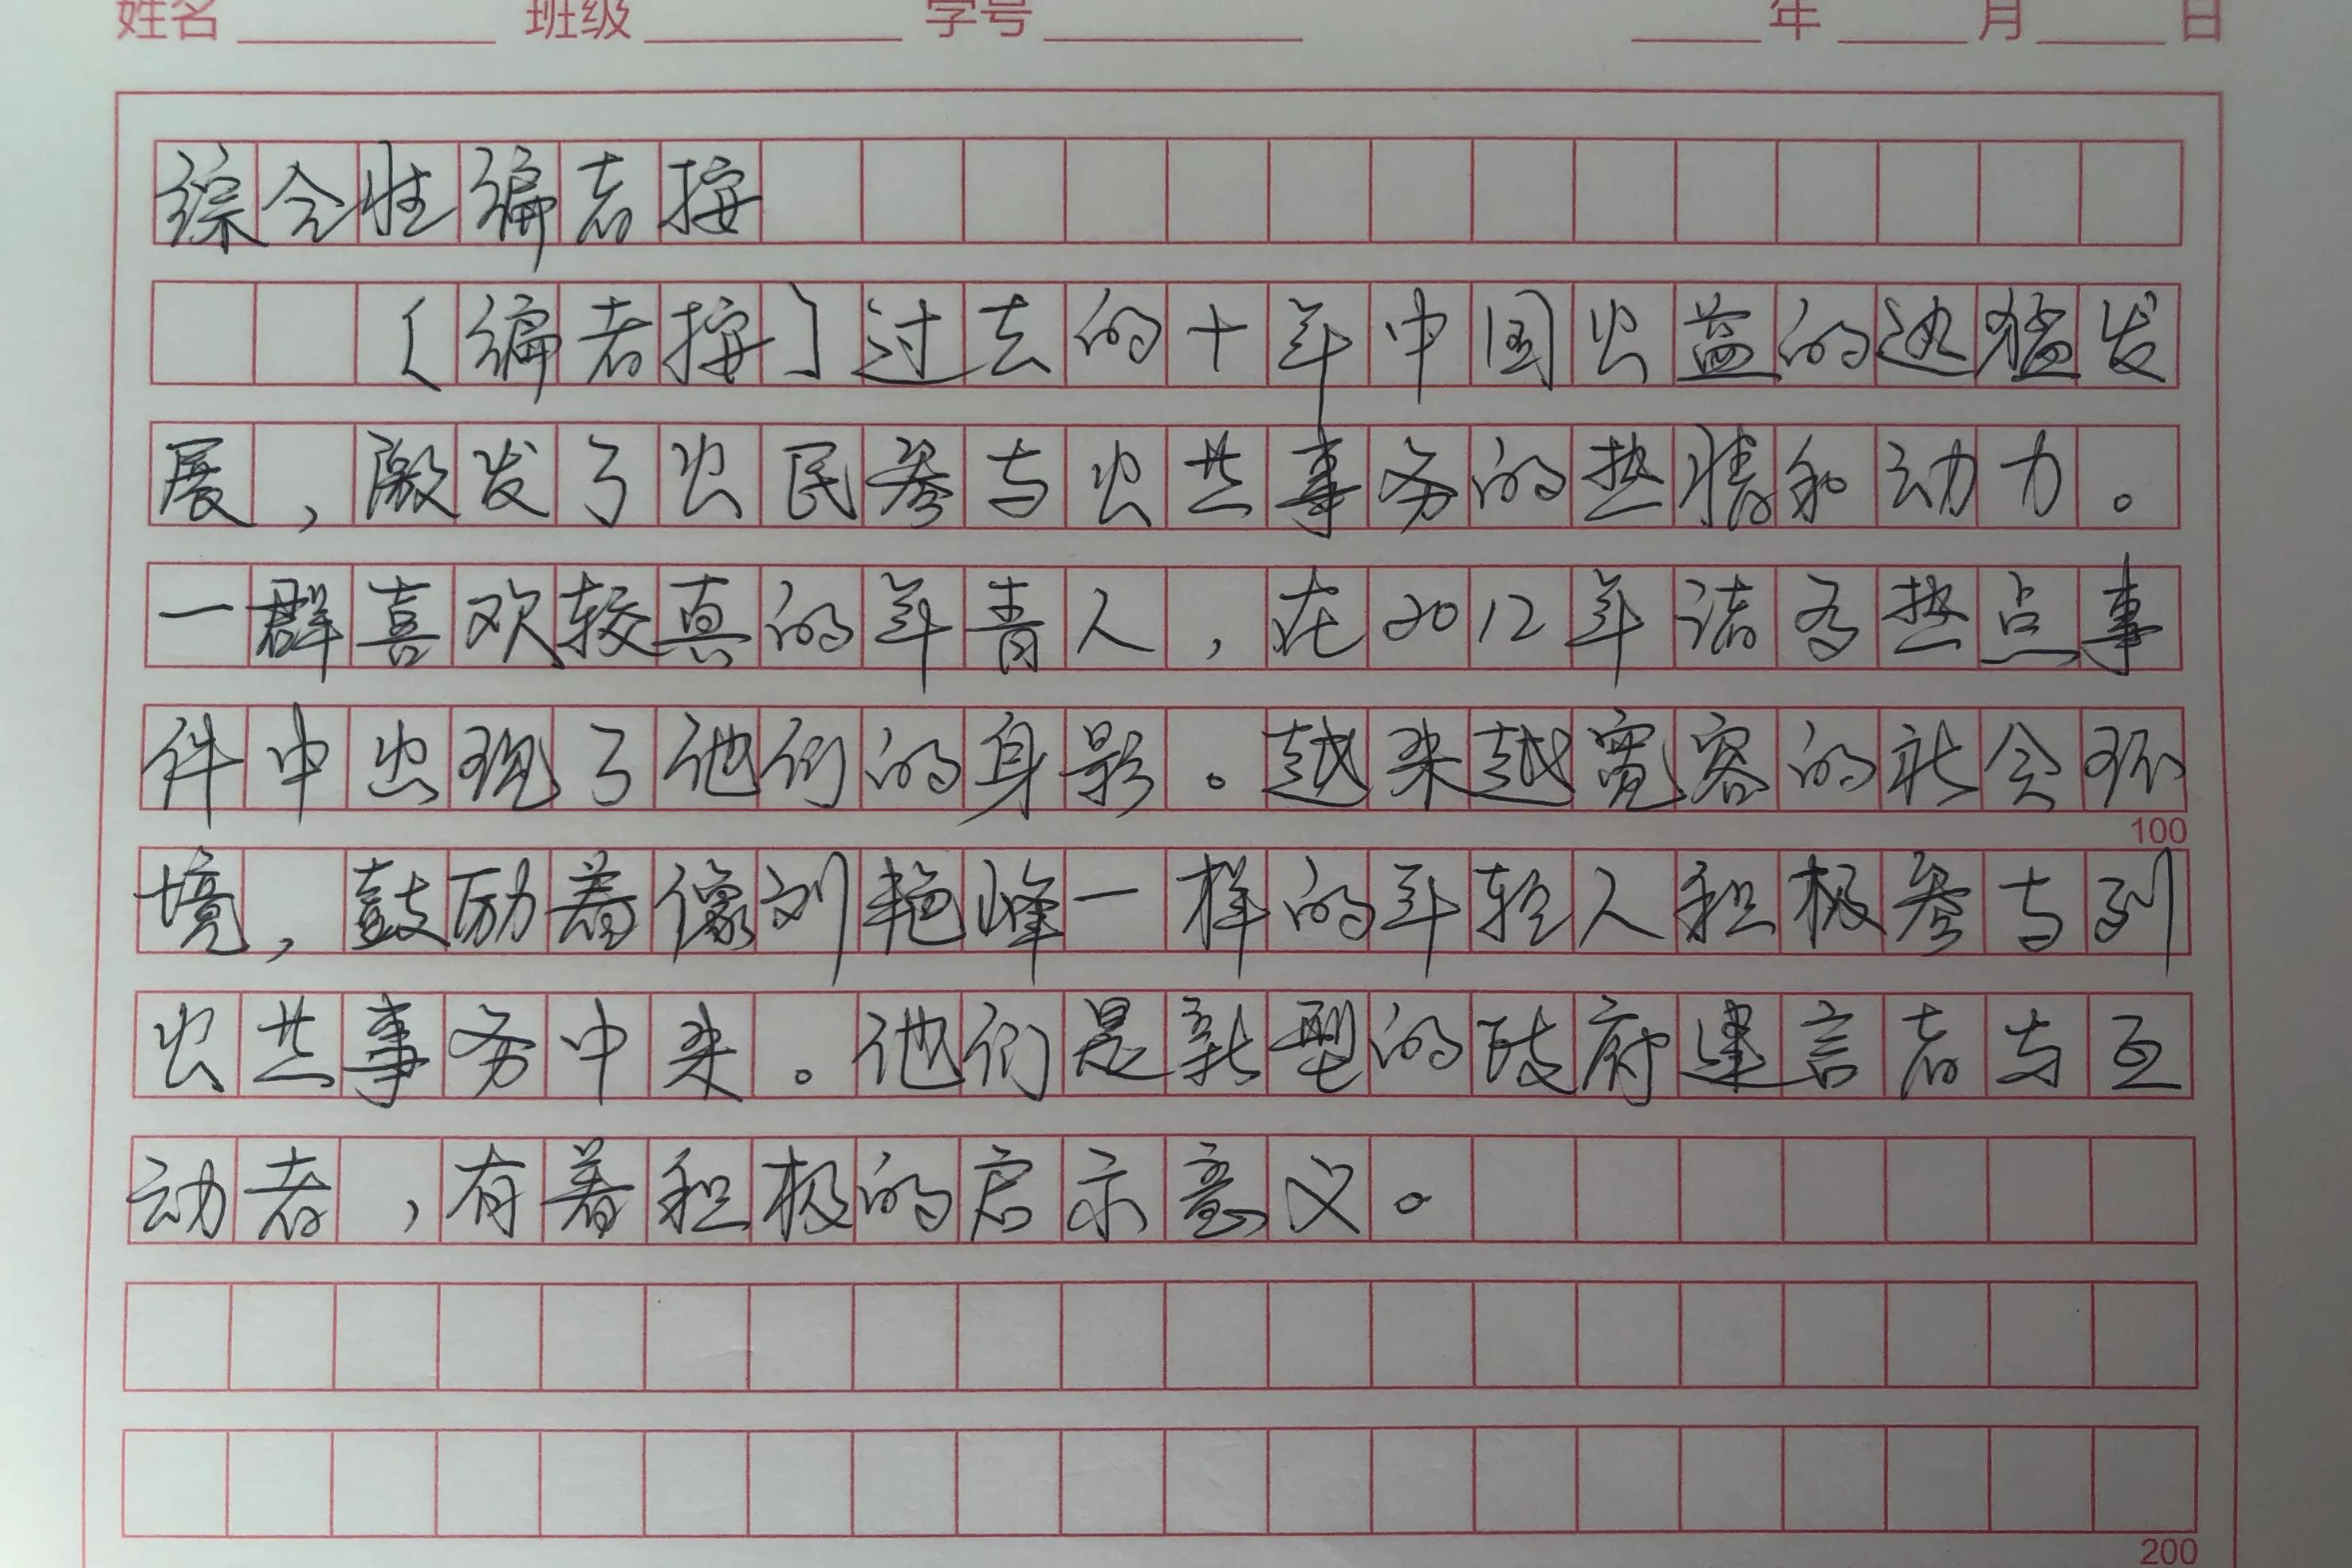 姓名 班级 学号 年 月 日
综合性编者按
〔编者按〕过去的十年中国公益的迅猛发
展，激发了公民参与公共事务的热情和动力。
一群喜欢较真的年青人，在2012年诸多热点事
件中出现了他们的身影。越来越宽容的社会环
100
境，鼓励着像刘艳峰一样的年轻人积极参与到
公共事务中来。他们是新型的政府建言者与互
动者，有着积极的启示意义。
200